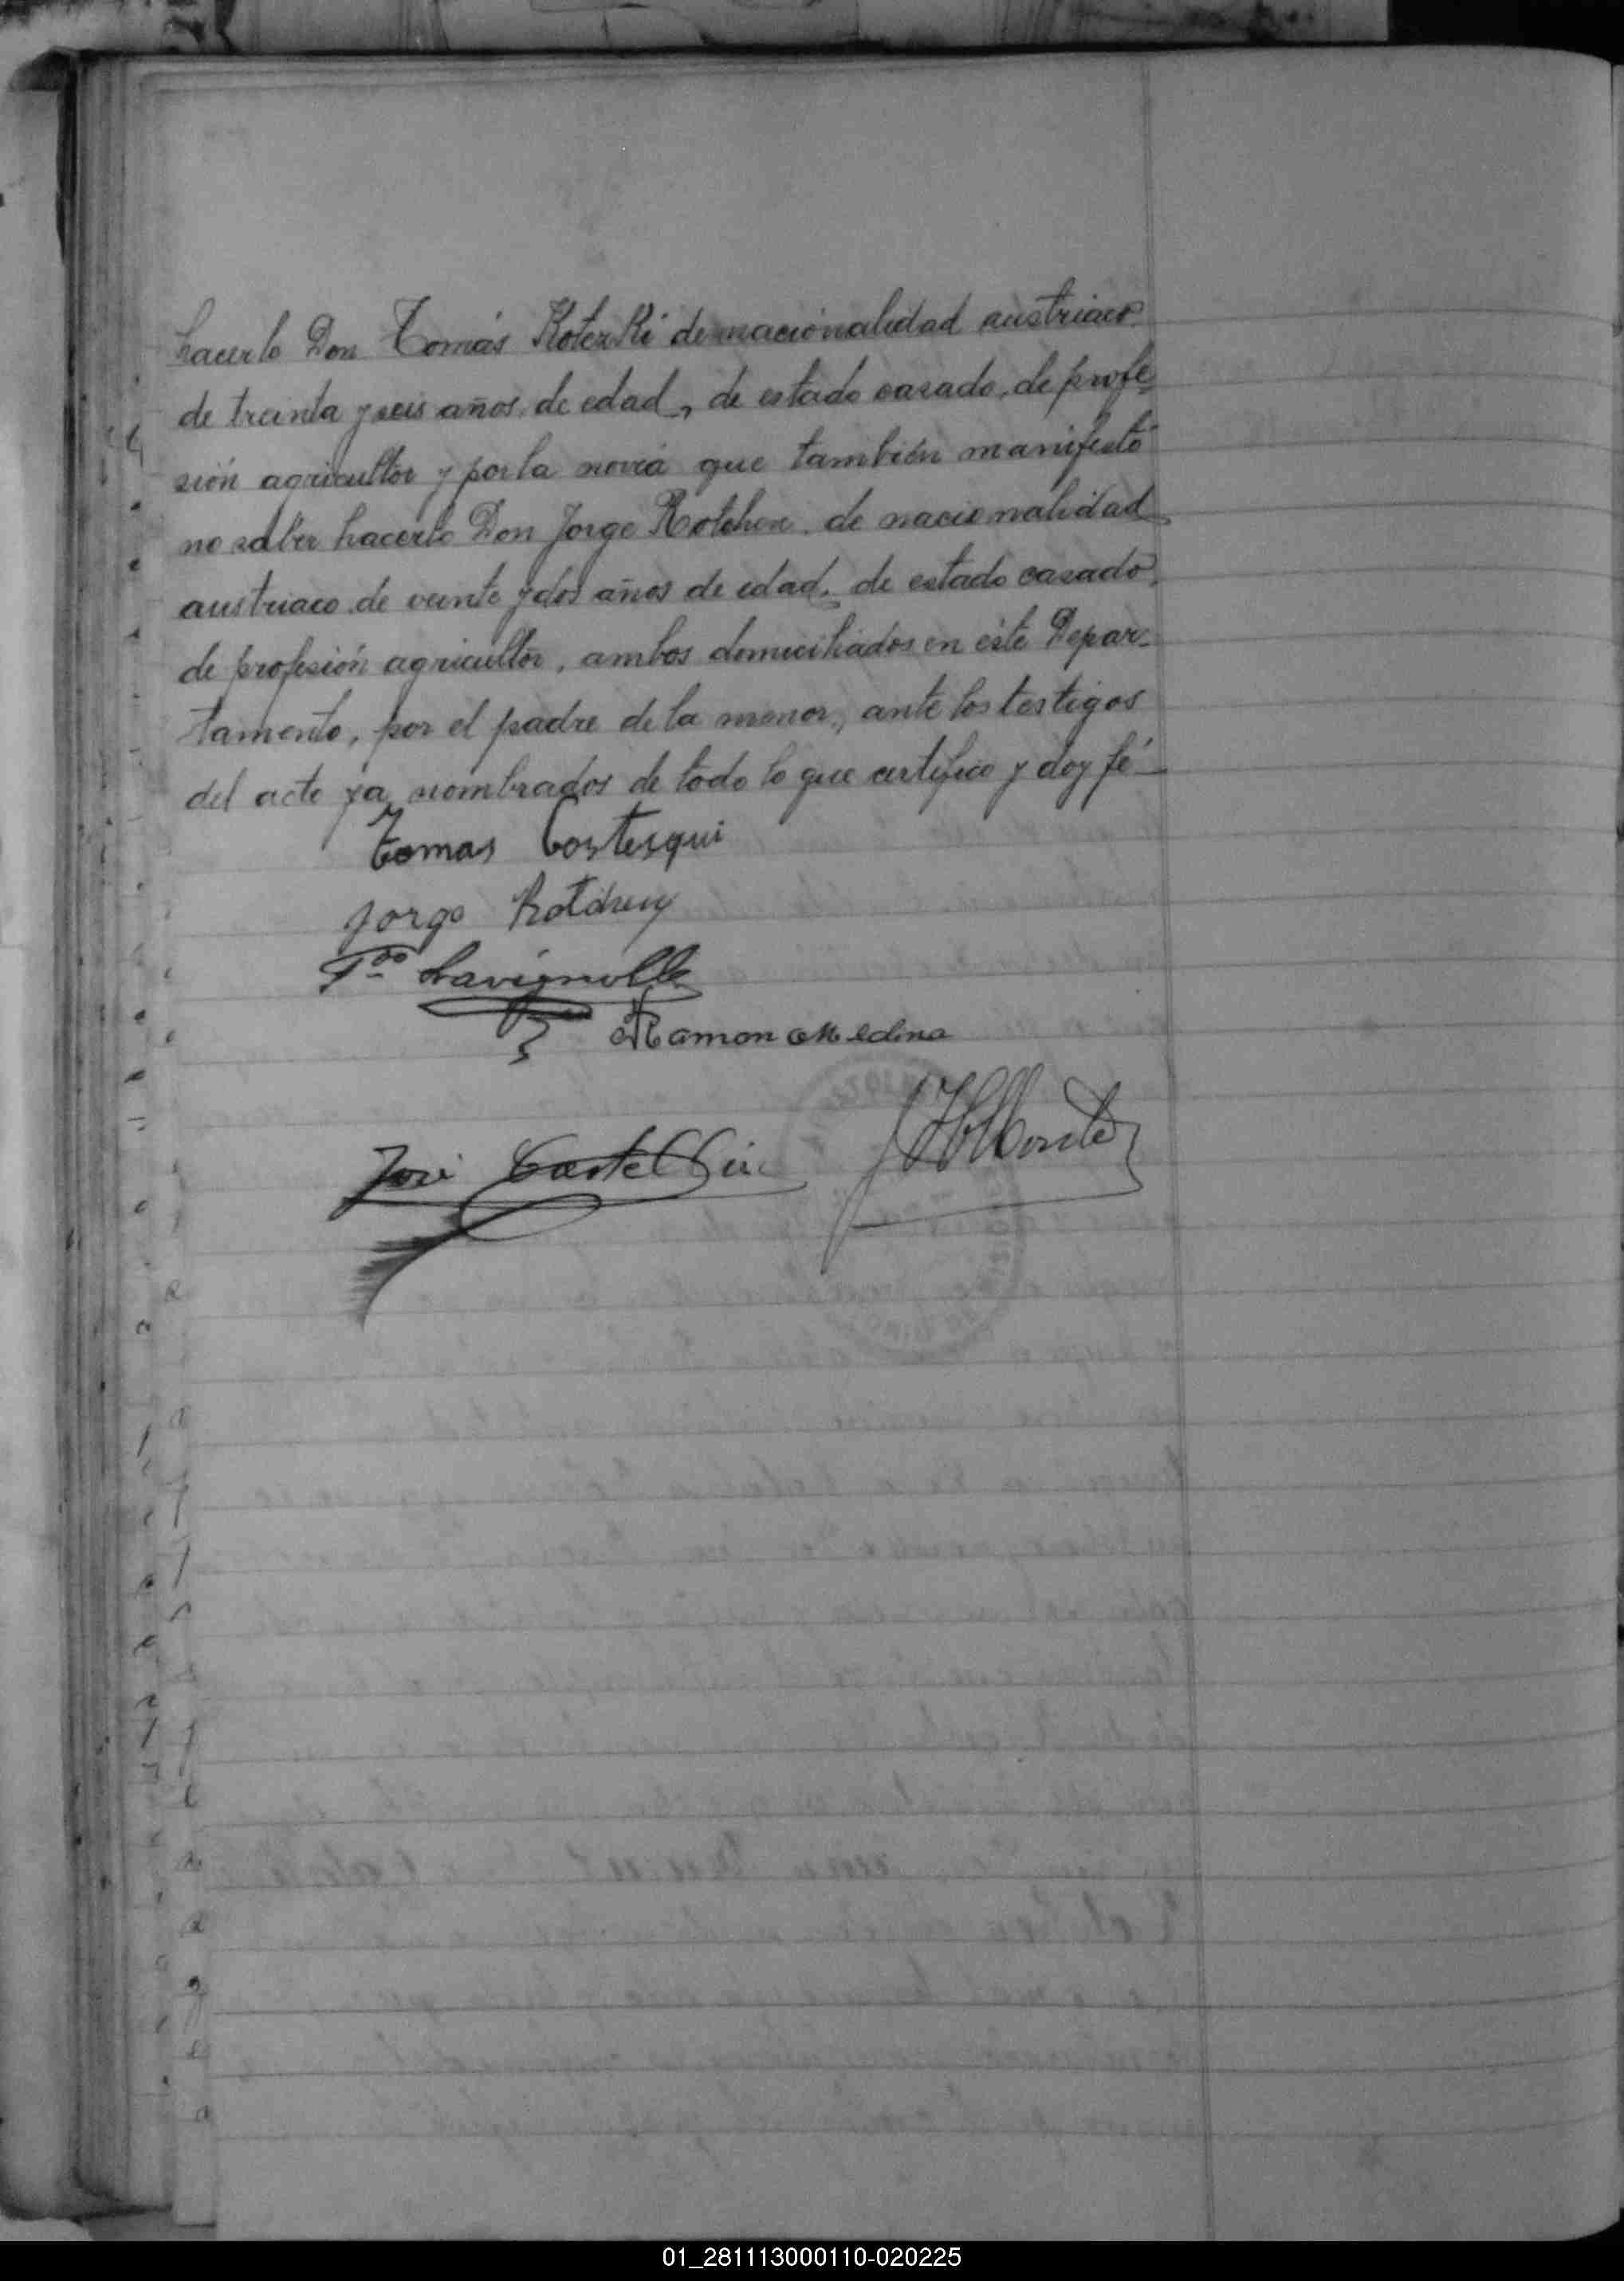 hacerlo Don Tomás Koterki de nacionalidad austriaco
de treinta y seis años de edad, de estado casado, de profe-
sión agricultor y por la novia que también manifestó
no saber hacerlo Don Jorge Rotchen de nacionalidad
austriaco de veinte y dos años de edad, de estado casado,
de profesión agricultor, ambos domiciliados en este Depar-
tamento, por el padre de la menor, ante los testigos
del acto ya nombrados de todo lo que certifico y doy fé
Tomas Costesqui
Jorge
Lavignolle
Ramon Medina
José
01_281113000110-020225